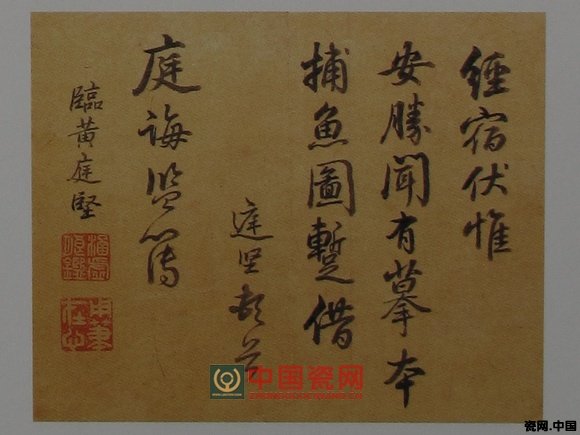 經宿伏惟
安勝聞有摹本
捕魚圖暫借
庭堅頓首
庭誨監簿
臨黃庭堅
中国瓷网
瓷网.中国